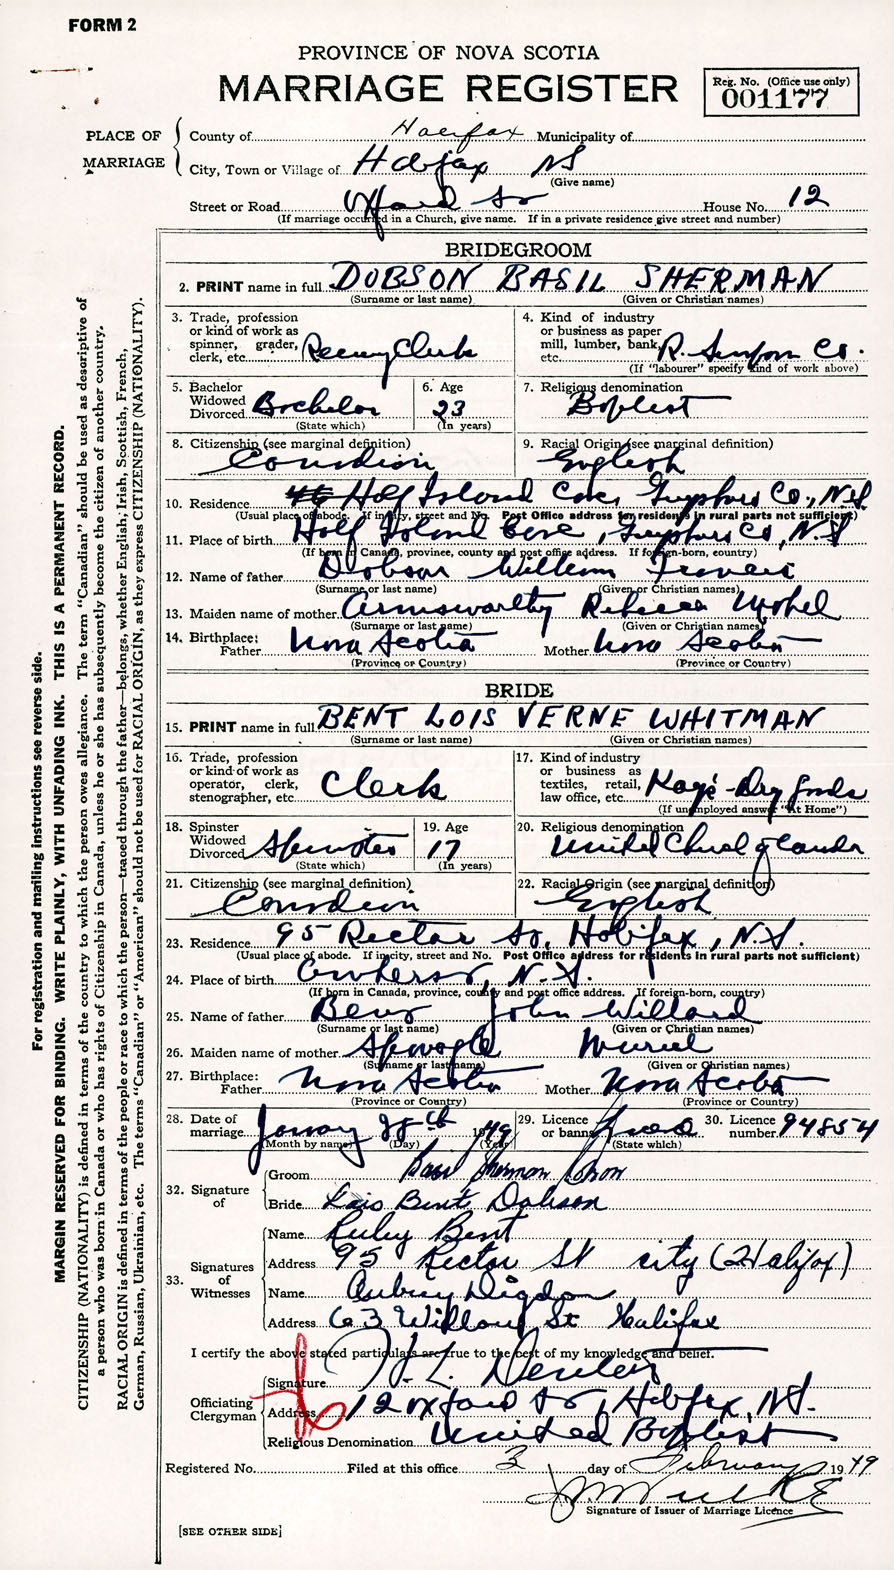 FORM 2
PROVINCE OF NOVA SCOTIA
MARRIAGE REGISTER
Reg. No. (Office use only)
001177
PLACE OF MARRIAGE
County of Halifax Municipality of
City, Town or Village of Halifax NS
(Give name)
Street or Road Oxford St House No. 12
(If marriage occurred in a Church, give name. If in a private residence give street and number)
BRIDEGROOM
2. PRINT name in full DOBSON BASIL SHERMAN
(Surname or last name) (Given or Christian names)
3. Trade, profession or kind of work as spinner, grader, clerk, etc. Clerk
4. Kind of industry or business as paper mill, lumber, bank, etc. R. Simpson Co.
(If "labourer" specify kind of work above)
5. Bachelor Widowed Divorced Bachelor
(State which)
6. Age 23
(In years)
7. Religious denomination Baptist
8. Citizenship (see marginal definition) Canadian
9. Racial Origin (see marginal definition) English
10. Residence Half Island Cove Guysboro Co, N.S.
(Usual place of abode. If in city, street and No. Post Office address for residents in rural parts not sufficient)
11. Place of birth Half Island Cove, Guysboro Co, N.S
(If born in Canada, province, county and post office address. If foreign-born, country)
12. Name of father Dobson William Francis
(Surname or last name) (Given or Christian names)
13. Maiden name of mother Armsworthy Rebecca Mabel
(Surname or last name) (Given or Christian names)
14. Birthplace: Father Nova Scotia Mother Nova Scotia
(Province or Country) (Province or Country)
BRIDE
15. PRINT name in full BENT LOIS VERNE WHITMAN
(Surname or last name) (Given or Christian names)
16. Trade, profession or kind of work as operator, clerk, stenographer, etc. Clerk
17. Kind of industry or business as textiles, retail, law office, etc. Kay's Dry Goods
(If unemployed answer "At Home")
18. Spinster Widowed Divorced Spinster
(State which)
19. Age 17
(In years)
20. Religious denomination United Church of Canada
21. Citizenship (see marginal definition) Canadian
22. Racial Origin (see marginal definition) English
23. Residence 95 Rector St, Halifax, N.S.
(Usual place of abode. If in city, street and No. Post Office address for residents in rural parts not sufficient)
24. Place of birth Amherst, N.S.
(If born in Canada, province, county and post office address. If foreign-born, country)
25. Name of father Bent John Willard
(Surname or last name) (Given or Christian names)
26. Maiden name of mother Muriel
(Surname or last name) (Given or Christian names)
27. Birthplace: Father Nova Scotia Mother Nova Scotia
(Province or Country) (Province or Country)
28. Date of marriage January 28th 1949
(Month by name) (Day) (Year)
29. Licence or banns
(State which)
30. Licence number 94854
32. Signature of
Groom Basil Sherman Dobson
Bride Lois Bent Dobson
33. Signatures of Witnesses
Name Ruby Bent
Address 95 Rector St city (Halifax)
Name Aubrey Digdon
Address 63 Willow St Halifax
I certify the above stated particulars are true to the best of my knowledge and belief.
Officiating Clergyman
Signature H. L.
Address 12 Oxford St, Halifax, N.S.
Religious Denomination United Baptist
Registered No. Filed at this office 3 day of February 1949
Signature of Issuer of Marriage Licence
[SEE OTHER SIDE]
For registration and mailing instructions see reverse side.
MARGIN RESERVED FOR BINDING. WRITE PLAINLY, WITH UNFADING INK. THIS IS A PERMANENT RECORD.
CITIZENSHIP (NATIONALITY) is defined in terms of the country to which the person owes allegiance. The term "Canadian" should be used as descriptive of
a person who was born in Canada or who has rights of Citizenship in Canada, unless he or she has subsequently become the citizen of another country.
RACIAL ORIGIN is defined in terms of the people or race to which the person—traced through the father—belongs, whether English, Irish, Scottish, French,
German, Russian, Ukrainian, etc. The terms "Canadian" or "American" should not be used for RACIAL ORIGIN, as they express CITIZENSHIP (NATIONALITY).